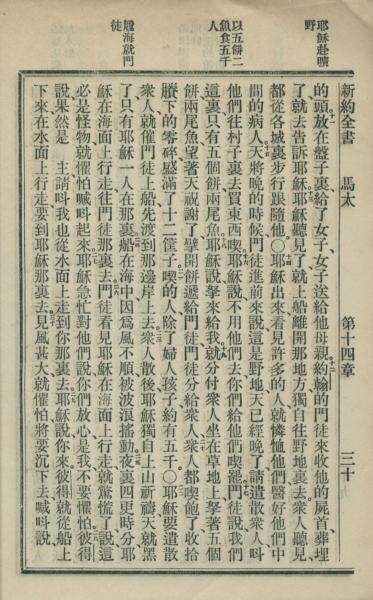 新約全書 馬太 第十四章 三十
耶穌赴曠野
以五餅二魚食五千人
履海就門徒
的頭放在盤子裏給了女子、女子送給他母親約翰的門徒來收他的屍首葬埋
了就去告訴耶穌耶穌聽見了就上船離開那地方獨自往野地裏去衆人聽見
都從各城裏步行跟隨他〇耶穌出來看見許多的人就憐恤他們醫好他們中
間的病人天將晚的時候門徒進前來說這是野地天已經晚了請遣散衆人呌
他們往村子裏去買東西喫耶穌說不用他們去你們給他們喫罷門徒說我們
這裏只有五個餅兩尾魚耶穌說拏來給我就分付衆人坐在草地上拏著五個
餅兩尾魚望著天祝謝了擘開餅遞給門徒門徒分給衆人衆人都喫飽了收拾
賸下的零碎盛滿了十二筐子喫的人除了婦人孩子約有五千〇耶穌要遣散
衆人就催門徒上船先渡到那邊岸上去衆人散後耶穌獨自上山祈禱天就黑
了只有耶穌一人在那裏船在海中因爲風不順被波浪搖動夜裏四更時分耶
穌在海面上行走往門徒那裏去門徒看見耶穌在海面上行走就驚慌了說這
必是怪物就懼怕喊呌起來耶穌急忙對他們說你們放心是我不要懼怕彼得
說果然是 主請呌我也從水面上走到你那裏去耶穌說你來彼得就從船上
下來在水面上行走要到耶穌那裏去見風甚大就懼怕將要沉下去喊呌說